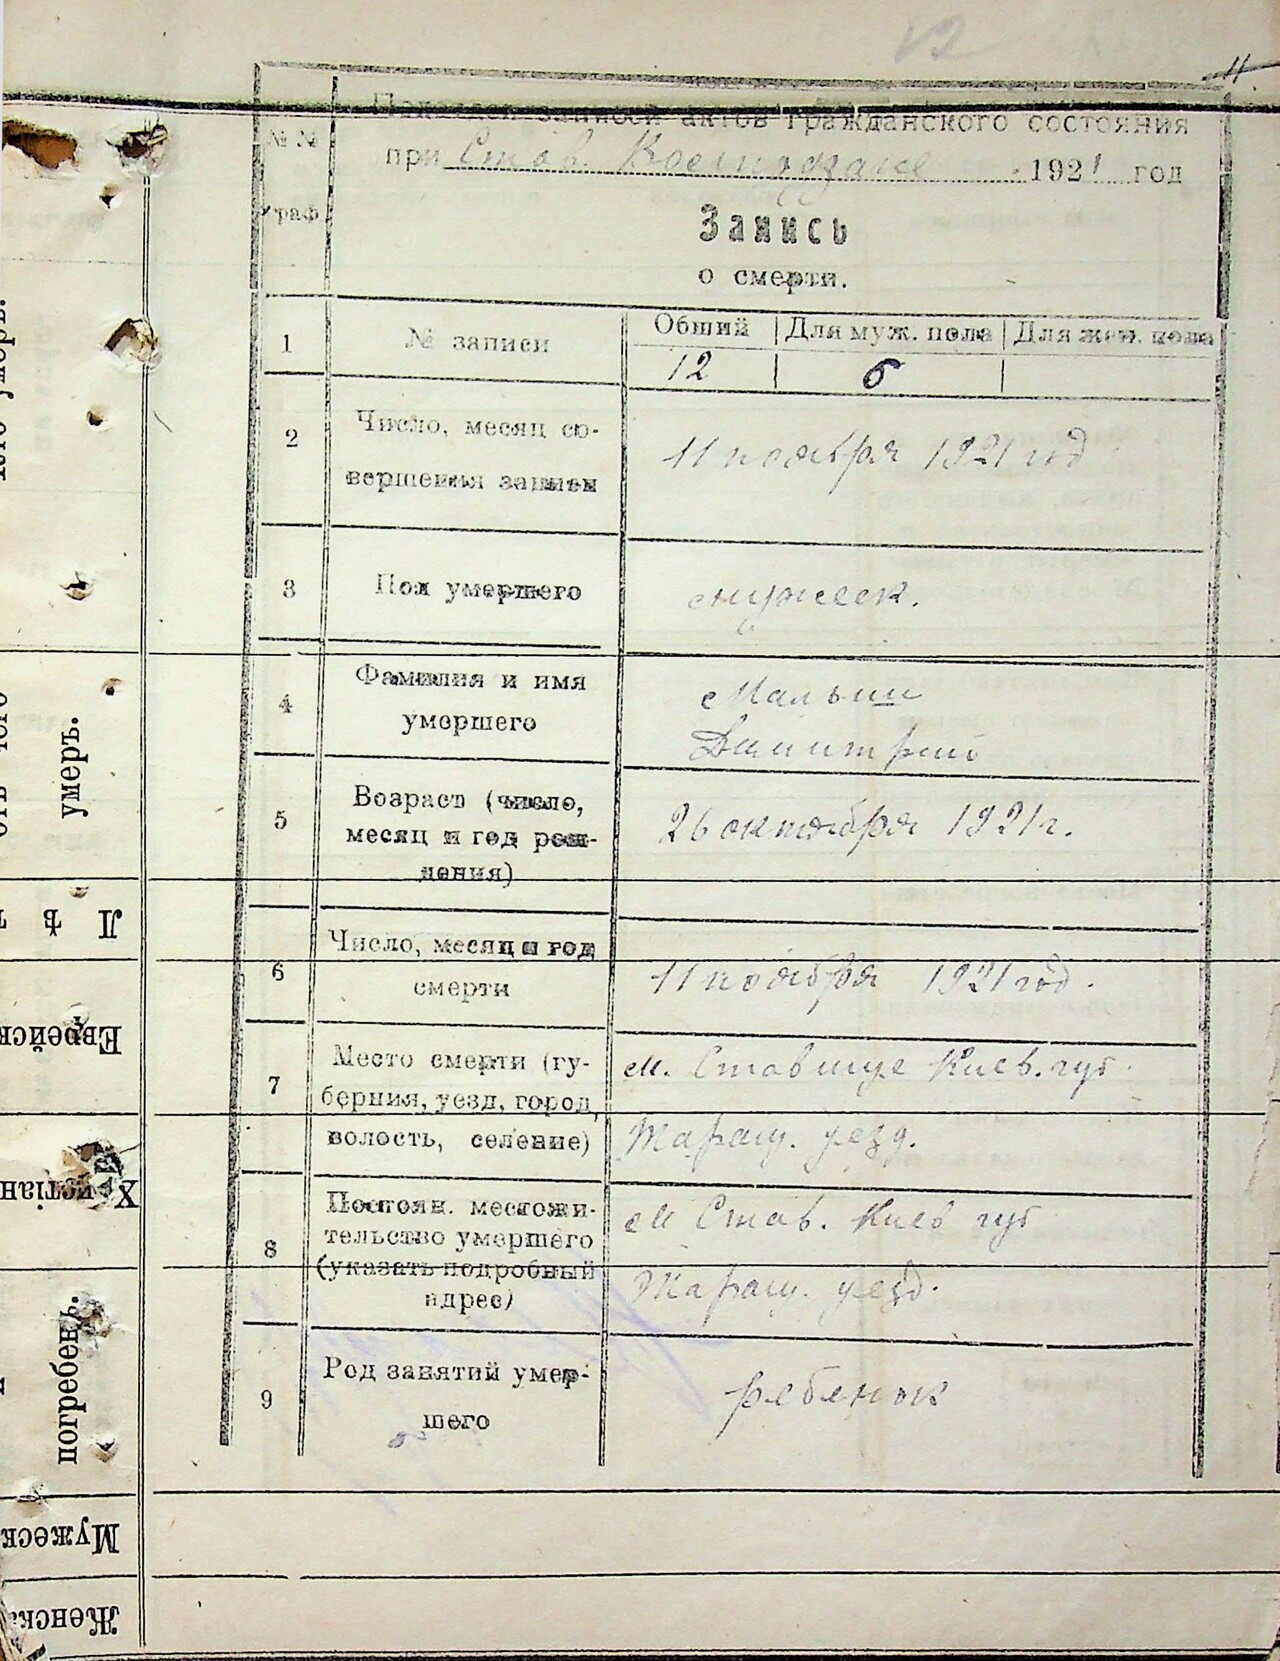 12
11
Показной записей актов гражданского состояния
при Став. 1921 год
№№ граф
Запись
о смерти.
1 № записи Общий Для муж. пола Для жен. пола
12 6
2 Число, месяц со-
вершения записи
11 ноября 1921 год
3 Пол умершего мужеск.
4 Фамилия и имя
умершего
Малыш
Дмитрий
5 Возраст (число,
месяц и год рож-
дения)
26 октября 1921 г.
6 Число, месяц и год
смерти
11 ноября 1921 год.
7 Место смерти (гу-
берния, уезд, город,
волость, селение)
м. Ставище Киев. губ.
Таращ. уезд.
8 Постоян. местожи-
тельство умершего
(указать подробный
адрес)
м Став. Киев губ
Таращ. уезд.
9 Род занятий умер-
шего
ребенок
умеръ.
Лѣт
Еврейск
Христіан
погребенъ.
Мужеск
Женск.